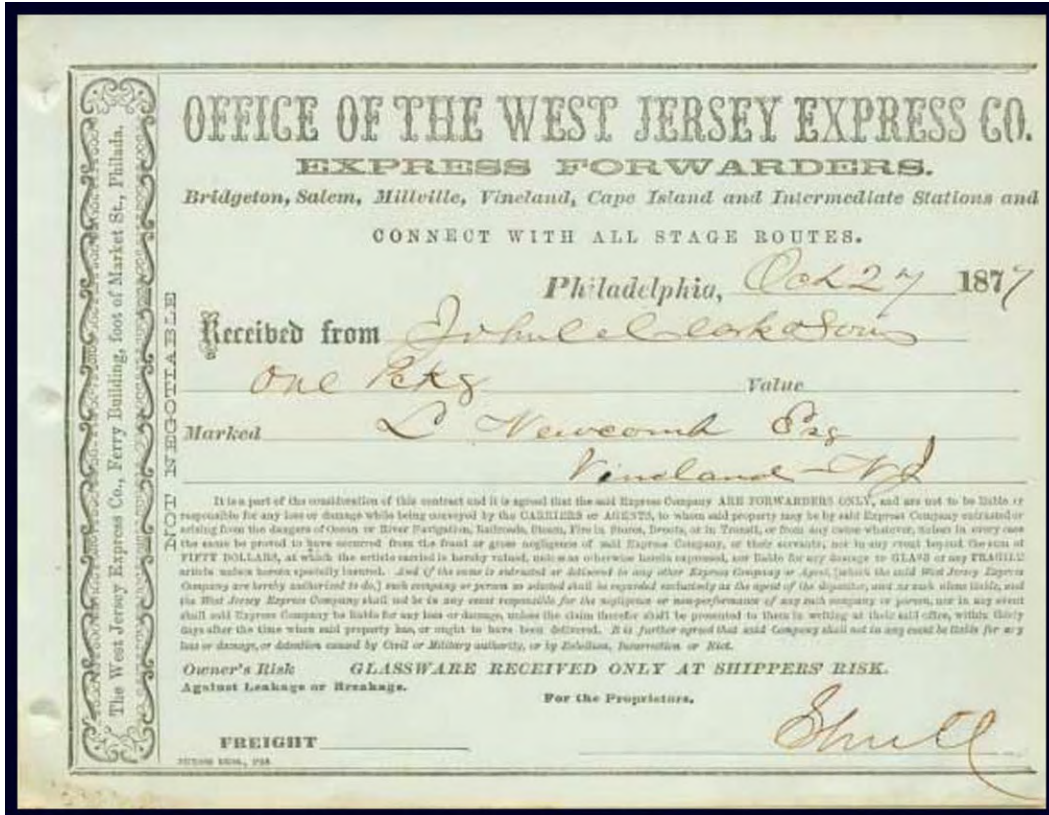 OFFICE OF THE WEST JERSEY EXPRESS CO.
EXPRESS FORWARDERS.
Bridgeton, Salem, Millville, Vineland, Cape Island and Intermediate Stations and
CONNECT WITH ALL STAGE ROUTES.
Philadelphia, Oct 27 1877
Received from John C Clark & Sons
One Pckg Value
Marked L Newcomb Esq
Vineland - NJ
It is a part of the consideration of this contract and it is agreed that the said Express Company ARE FORWARDERS ONLY, and are not to be liable or
responsible for any loss or damage while being conveyed by the CARRIERS or AGENTS, to whom said property may be by said Express Company entrusted or
arising from the dangers of Ocean or River Navigation, Railroads, Steam, Fire in Stores, Depots, or in Transit, or from any cause whatever, unless in every case
the same be proved to have occurred from the fraud or gross negligence of said Express Company, or their servants; nor in any event beyond the sum of
FIFTY DOLLARS, at which the article carried is hereby valued, unless otherwise herein expressed, nor liable for any damage to GLASS or any FRAGILE
article unless herein specially insured. And if the same is entrusted or delivered to any other Express Company or Agent, [which the said West Jersey Express
Company are hereby authorized to do,] such company or person so selected shall be regarded exclusively as the agent of the depositor, and as such alone liable, and
the West Jersey Express Company shall not be in any event responsible for the negligence or non-performance of any such company or person, nor in any event
shall said Express Company be liable for any loss or damage, unless the claim therefor shall be presented to them in writing at their said office, within thirty
days after the time when said property has, or ought to have been delivered. It is further agreed that said Company shall not in any event be liable for any
loss or damage, or detention caused by Civil or Military authority, or by Rebellion, Insurrection or Riot.
Owner's Risk GLASSWARE RECEIVED ONLY AT SHIPPERS' RISK.
Against Leakage or Breakage.
For the Proprietors,
Shull
FREIGHT
BROS.,
NOT NEGOTIABLE
The West Jersey Express Co., Ferry Building, foot of Market St., Philada.